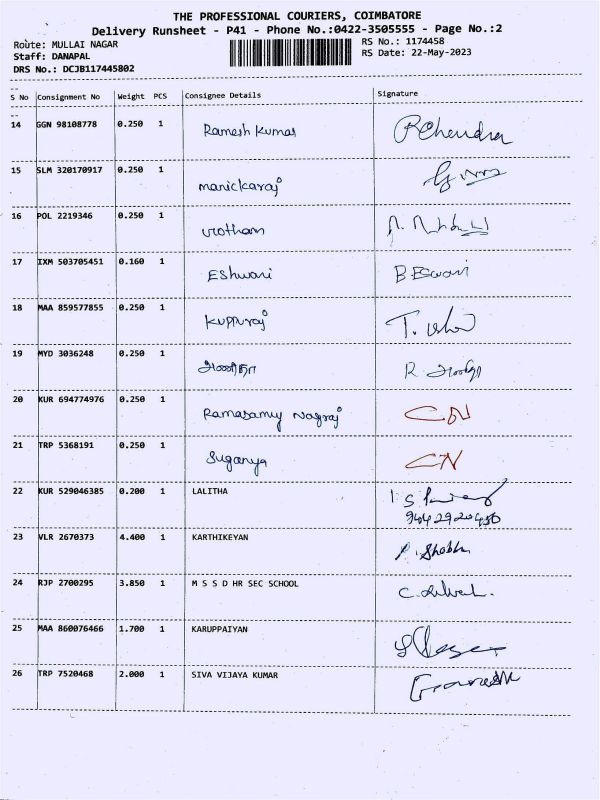 THE PROFESSIONAL COURIERS, COIMBATORE
Delivery Runsheet - P41 - Phone No.:0422-3505555 - Page No.:2
Route: MULLAI NAGAR
RS No.: 1174458
Staff: DANAPAL
RS Date: 22-May-2023
DRS No.: DCJB117445802
S No Consignment No Weight PCS Consignee Details Signature
14 GGN 98108778 0.250 1 Ramesh Kumar RChendra
15 SLM 320170917 0.250 1 manickaraj
16 POL 2219346 0.250 1
17 IXM 503705451 0.160 1 Eshwari B.Eswari
18 MAA 859577855 0.250 1 Kuppuraj T. Usha
19 MYD 3036248 0.250 1 R
20 KUR 694774976 0.250 1 Ramasamy Nagraj CN
21 TRP 5368191 0.250 1 Suganya CN
22 KUR 529046385 0.200 1 LALITHA
23 VLR 2670373 4.400 1 KARTHIKEYAN P. Shobha
24 RJP 2700295 3.850 1 M S S D HR SEC SCHOOL
25 MAA 860076466 1.700 1 KARUPPAIYAN
26 TRP 7520468 2.000 1 SIVA VIJAYA KUMAR